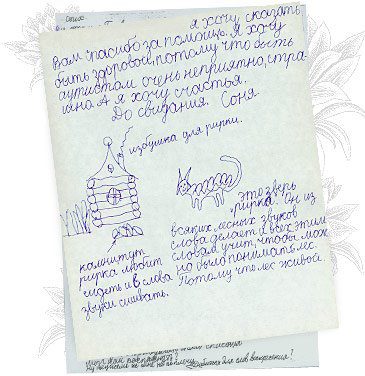 я хочу сказать
Вам спасибо за помощь. Я хочу
быть здоровой, потому что быть
аутистом очень неприятно, стра-
шно. А я хочу счастья.
До свидания. Соня.
избушка для рирки.
это зверь
рирка. Он из
всяких лесных звуков
слова делает и всех этим
словам учит, чтобы мож
но было понимать лес.
Потому что лес живой.
камни тут
рирка любит
сидеть и в слова
звуки сшивать.